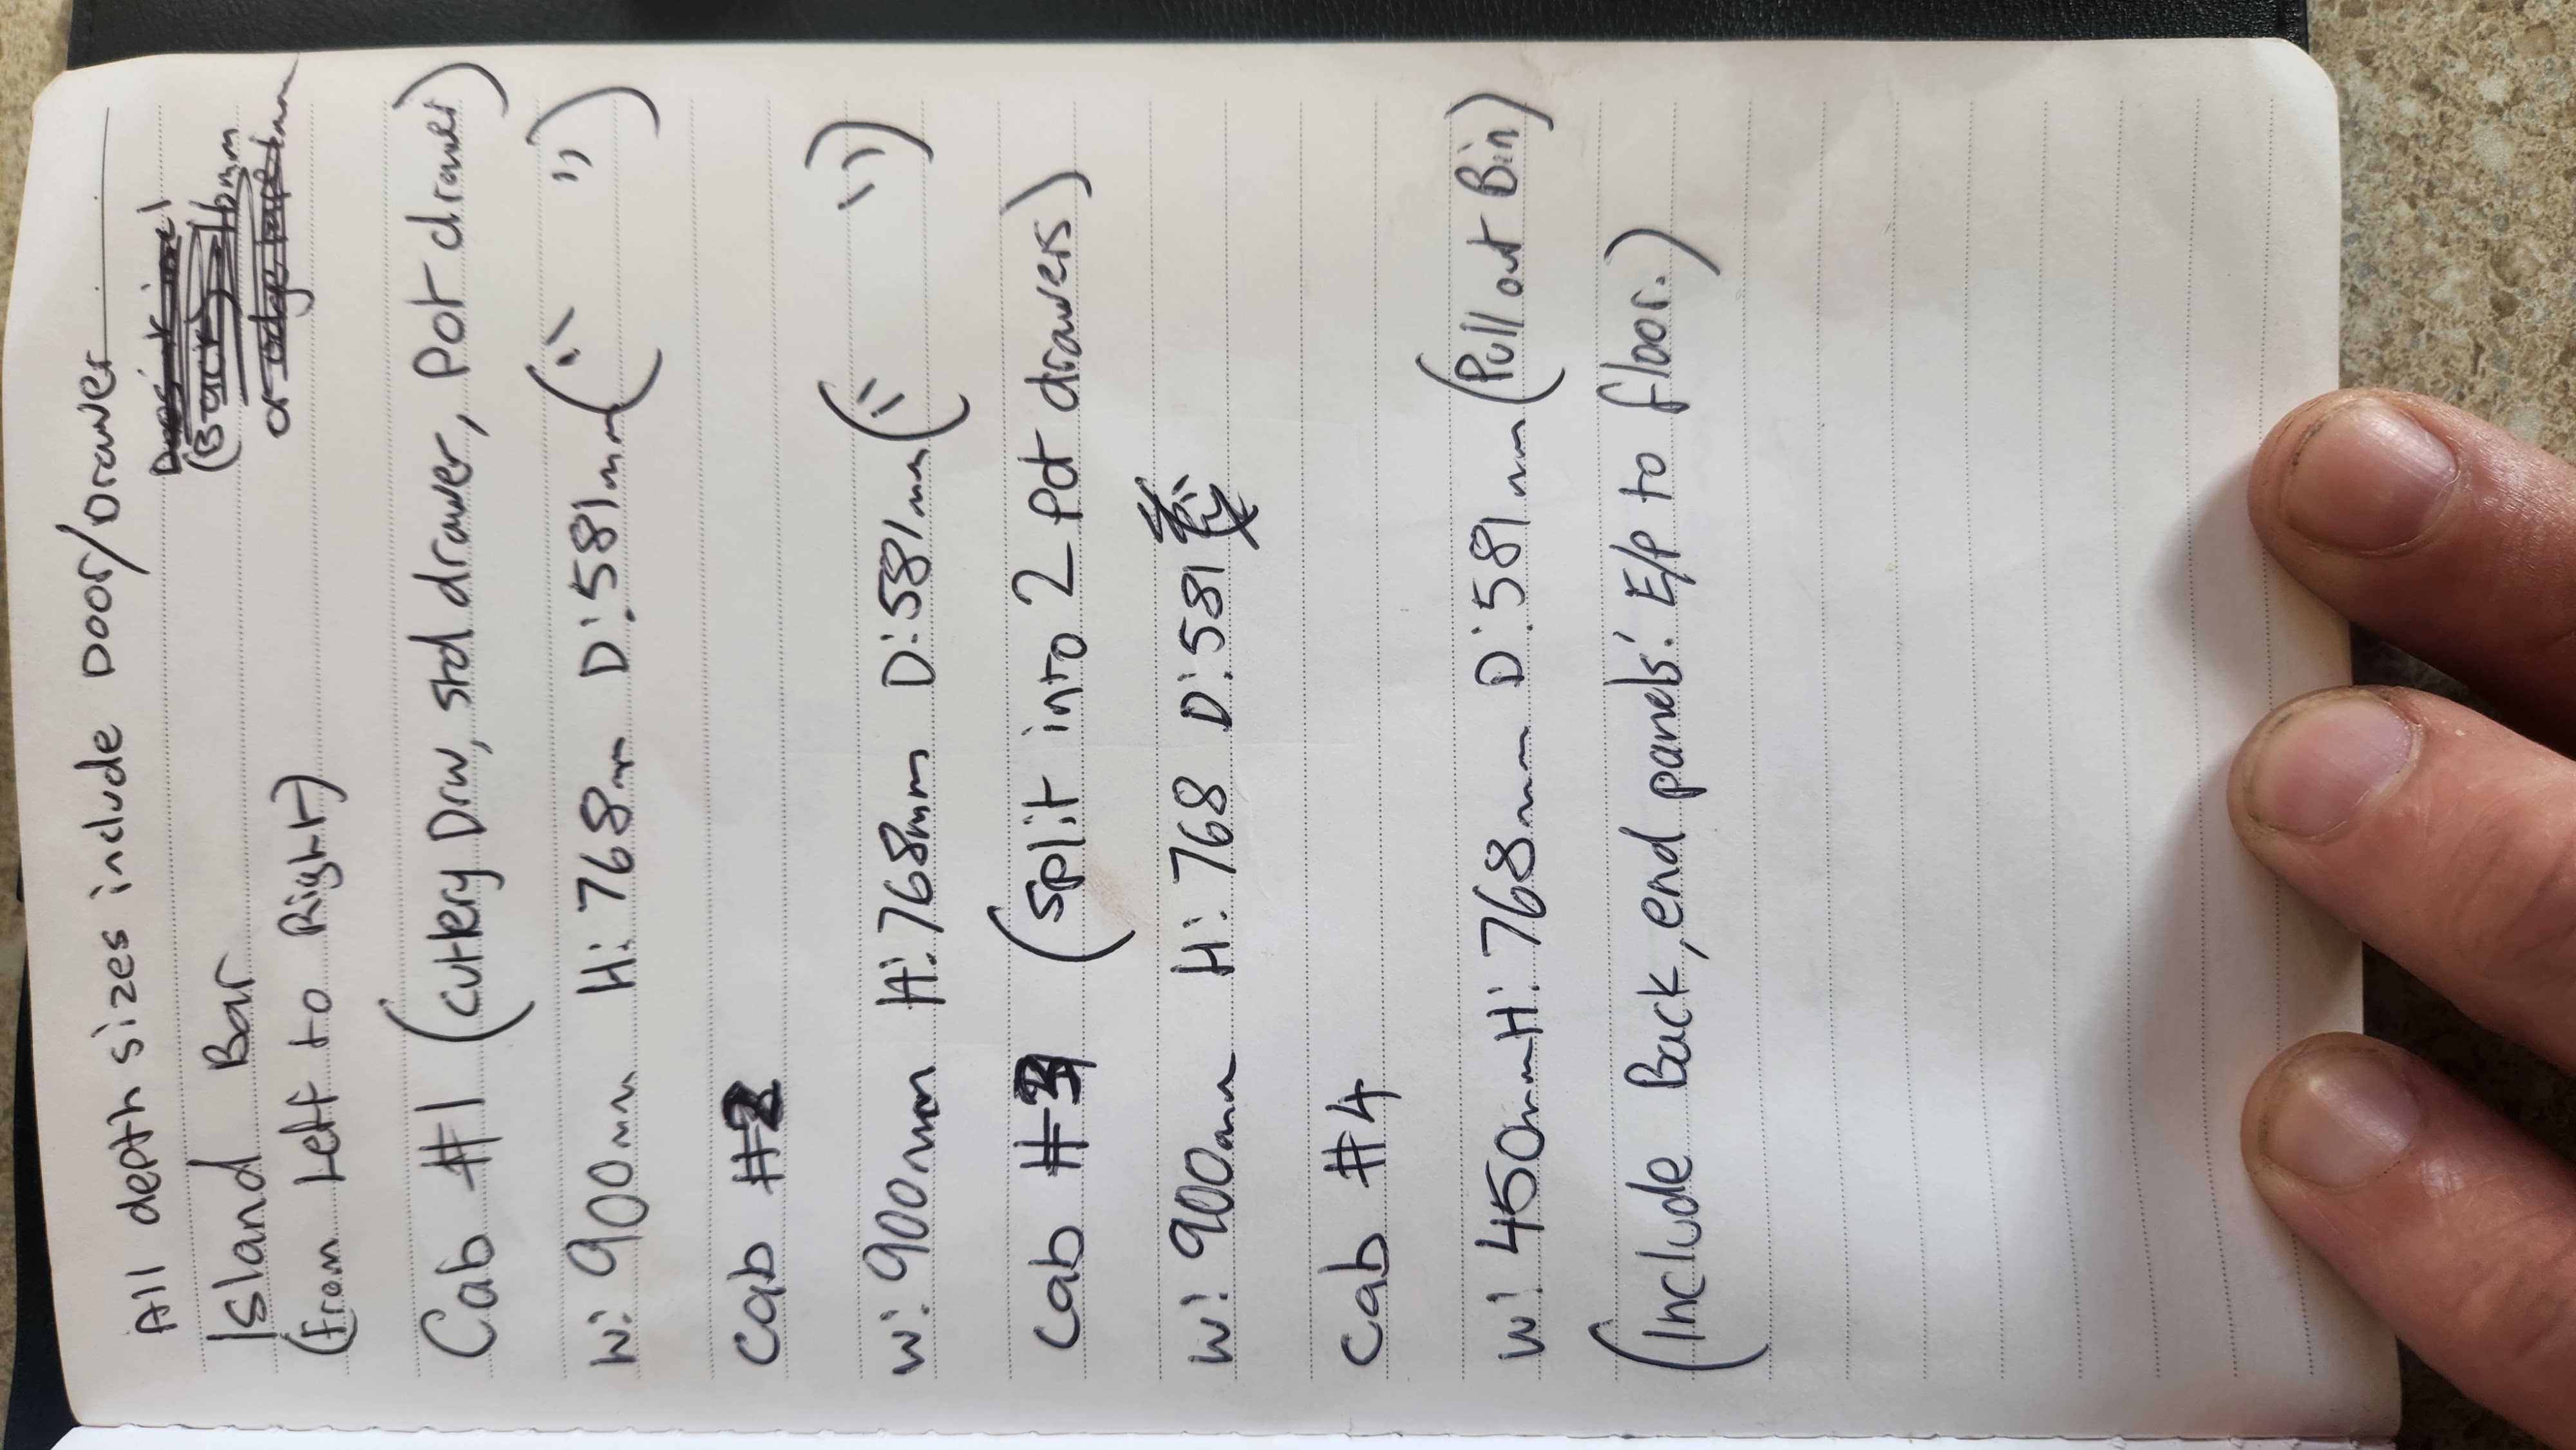 All depth sizes include Door/Drawer
Island Bar
(From Left to Right)
Cab #1 (Cutlery Drw, std drawer, Pot drawer)
W: 900mm H: 768mm D: 581mm (" ")
Cab #2
W: 900mm H: 768mm D: 581mm (" ")
Cab #3 (Split into 2 Pot drawers)
W: 900mm H: 768 D: 581
Cab #4
W: 450mm H: 768mm D: 581mm (Pull out Bin)
(Include Back, end panels. E/P to floor.)